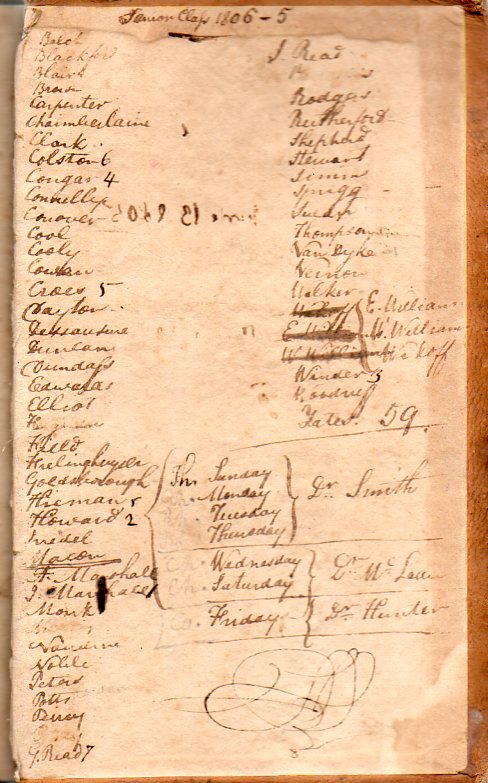 Junior Class 1806 - 5
Beech
Blackford
Blair
Brown
Carpenter
Chaimberlaine
Clark.
Colston 6
Congar 4
Connelly
Conover
Cool
Cooly
Cowan
Croes 5
Dayton
Dessausure
Duncan
Dundass
Edwards
Elliot
Field
Frelinghuysen
Goldsborough
Howard 2
Macon
A. Marshall
J. Marshall
Monk
Noble
Peters
Potts
G. Read 7
J. Read
Rodgers
Rutherford
Shepherd
Stewart
Simm
Sprigg
Thompson
Van Dyke
Vernon
Walker
E. William
W. William
Wikoff
Winder 3
Woodruff
Yates. 59.
Th. Sunday
Monday
Tuesday
Thursday
Dr. Smith
Wednesday
Ch. Saturday
Dr. McLean
Friday
Dr. Hunter